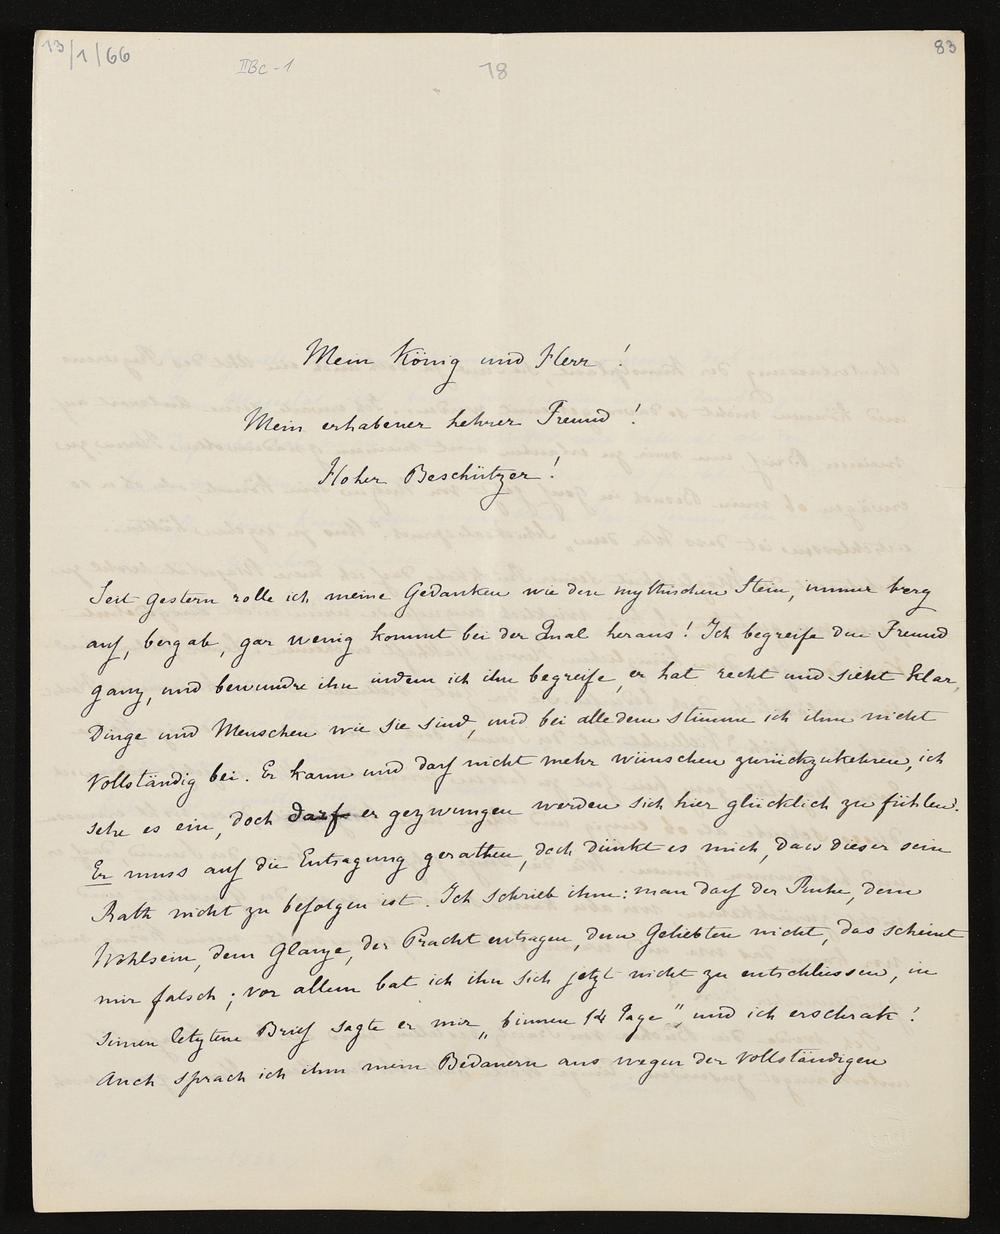 13/1/66
IIBc-1
78
83
Mein König und Herr!
Mein erhabener hehrer Freund!
Hoher Beschützer!
Seit gestern rolle ich meine Gedanken wie den mythischen Stein, immer berg
auf, bergab, gar wenig kommt bei der Qual heraus! Ich begreife den Freund
ganz, und bewundre ihn indem ich ihn begreife, er hat recht und sieht klar,
Dinge und Menschen wie sie sind, und bei alledem stimme ich ihm nicht
vollständig bei. Er kann und darf nicht mehr wünschen zurückzukehren, ich
sehe es ein, doch darf er gezwungen werden sich hier glücklich zu fühlen.
Er muss auf die Entsagung gerathen, doch dünkt es mich, dass dieser sein
Rath nicht zu befolgen ist. Ich schrieb ihm: man darf der Ruhe, dem
Wohlsein, dem Glanze, der Pracht entsagen, dem Geliebten nicht, das scheint
mir falsch; vor allem bat ich ihn sich jetzt nicht zu entschliessen, in
seinem letzten Brief sagte er mir „binnen 14 Tage", und ich erschrak!
Auch sprach ich ihm mein Bedauern aus wegen der vollständigen